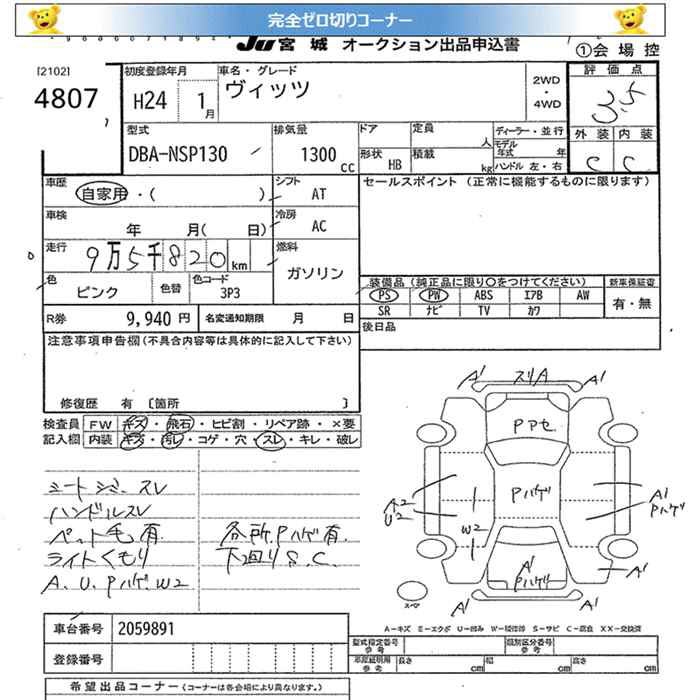 完全ゼロ切りコーナー
JU 宮城 オークション出品申込書
①会場控
[2102]
4807
初度登録年月
H24 1月
車名・グレード
ヴィッツ
2WD ・ 4WD
評価点
3.5
型式
DBA-NSP130
排気量
1300 CC
ドア
定員 人
ディーラー・並行
モデル年式 年
形状 HB
積載 kg
ハンドル 左・右
外装 内装
C C
車歴
自家用・( )
シフト
AT
セールスポイント (正常に機能するものに限ります)
車検
年 月( 日)
冷房
AC
走行
9万5千820km
燃料
ガソリン
色
ピンク
色替
色コード
3P3
装備品(純正品に限り○をつけてください)
新車保証書
PS PW ABS エアB AW
有・無
SR ナビ TV カワ
R券 9,940円
名変通知期限 月 日
後日品
注意事項申告欄(不具合内容等は具体的に記入して下さい)
修復歴 有 〔箇所 〕
検査員 FW キズ・飛石・ヒビ割・リペア跡・×要
記入欄 内装 キズ・汚レ・コゲ・穴・スレ・キレ・破レ
シートシミ、スレ
ハンドルスレ
ペット毛有
各所Pハゲ有.
ライトくもり
下廻りS.C.
A.U.Pハゲ.W2
A' スリA A'
Pアセ
Pハゲ
A2 U2
W2
A1 Pハゲ
A' Pハゲ
A'
A' A'
スペア
A-キズ E-エクボ U-凹み W-補修跡 S-サビ C-腐食 XX-交換済
車台番号 2059891
型式指定番号 参考
類別区分番号 参考
登録番号
車庫証明用 参考
長さ cm
幅 cm
高さ cm
希望出品コーナー(コーナーは各会場により異なります。)